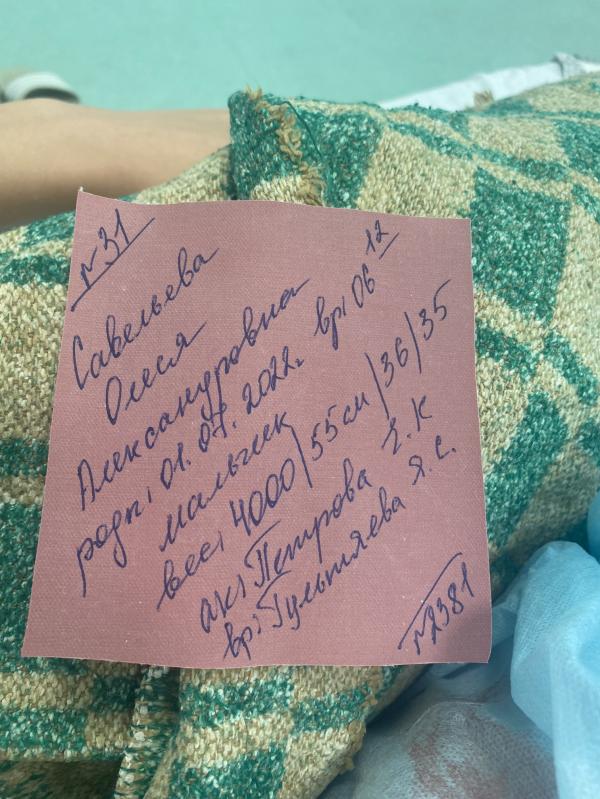 №31
Савельева
Олеся
Александровна
родн: 01.07.2022г. вр: 06 12
мальчик
вес: 4000/55см/36/35
ак: Петрова Е.К
вр: Гультяева Я.С.
№2381